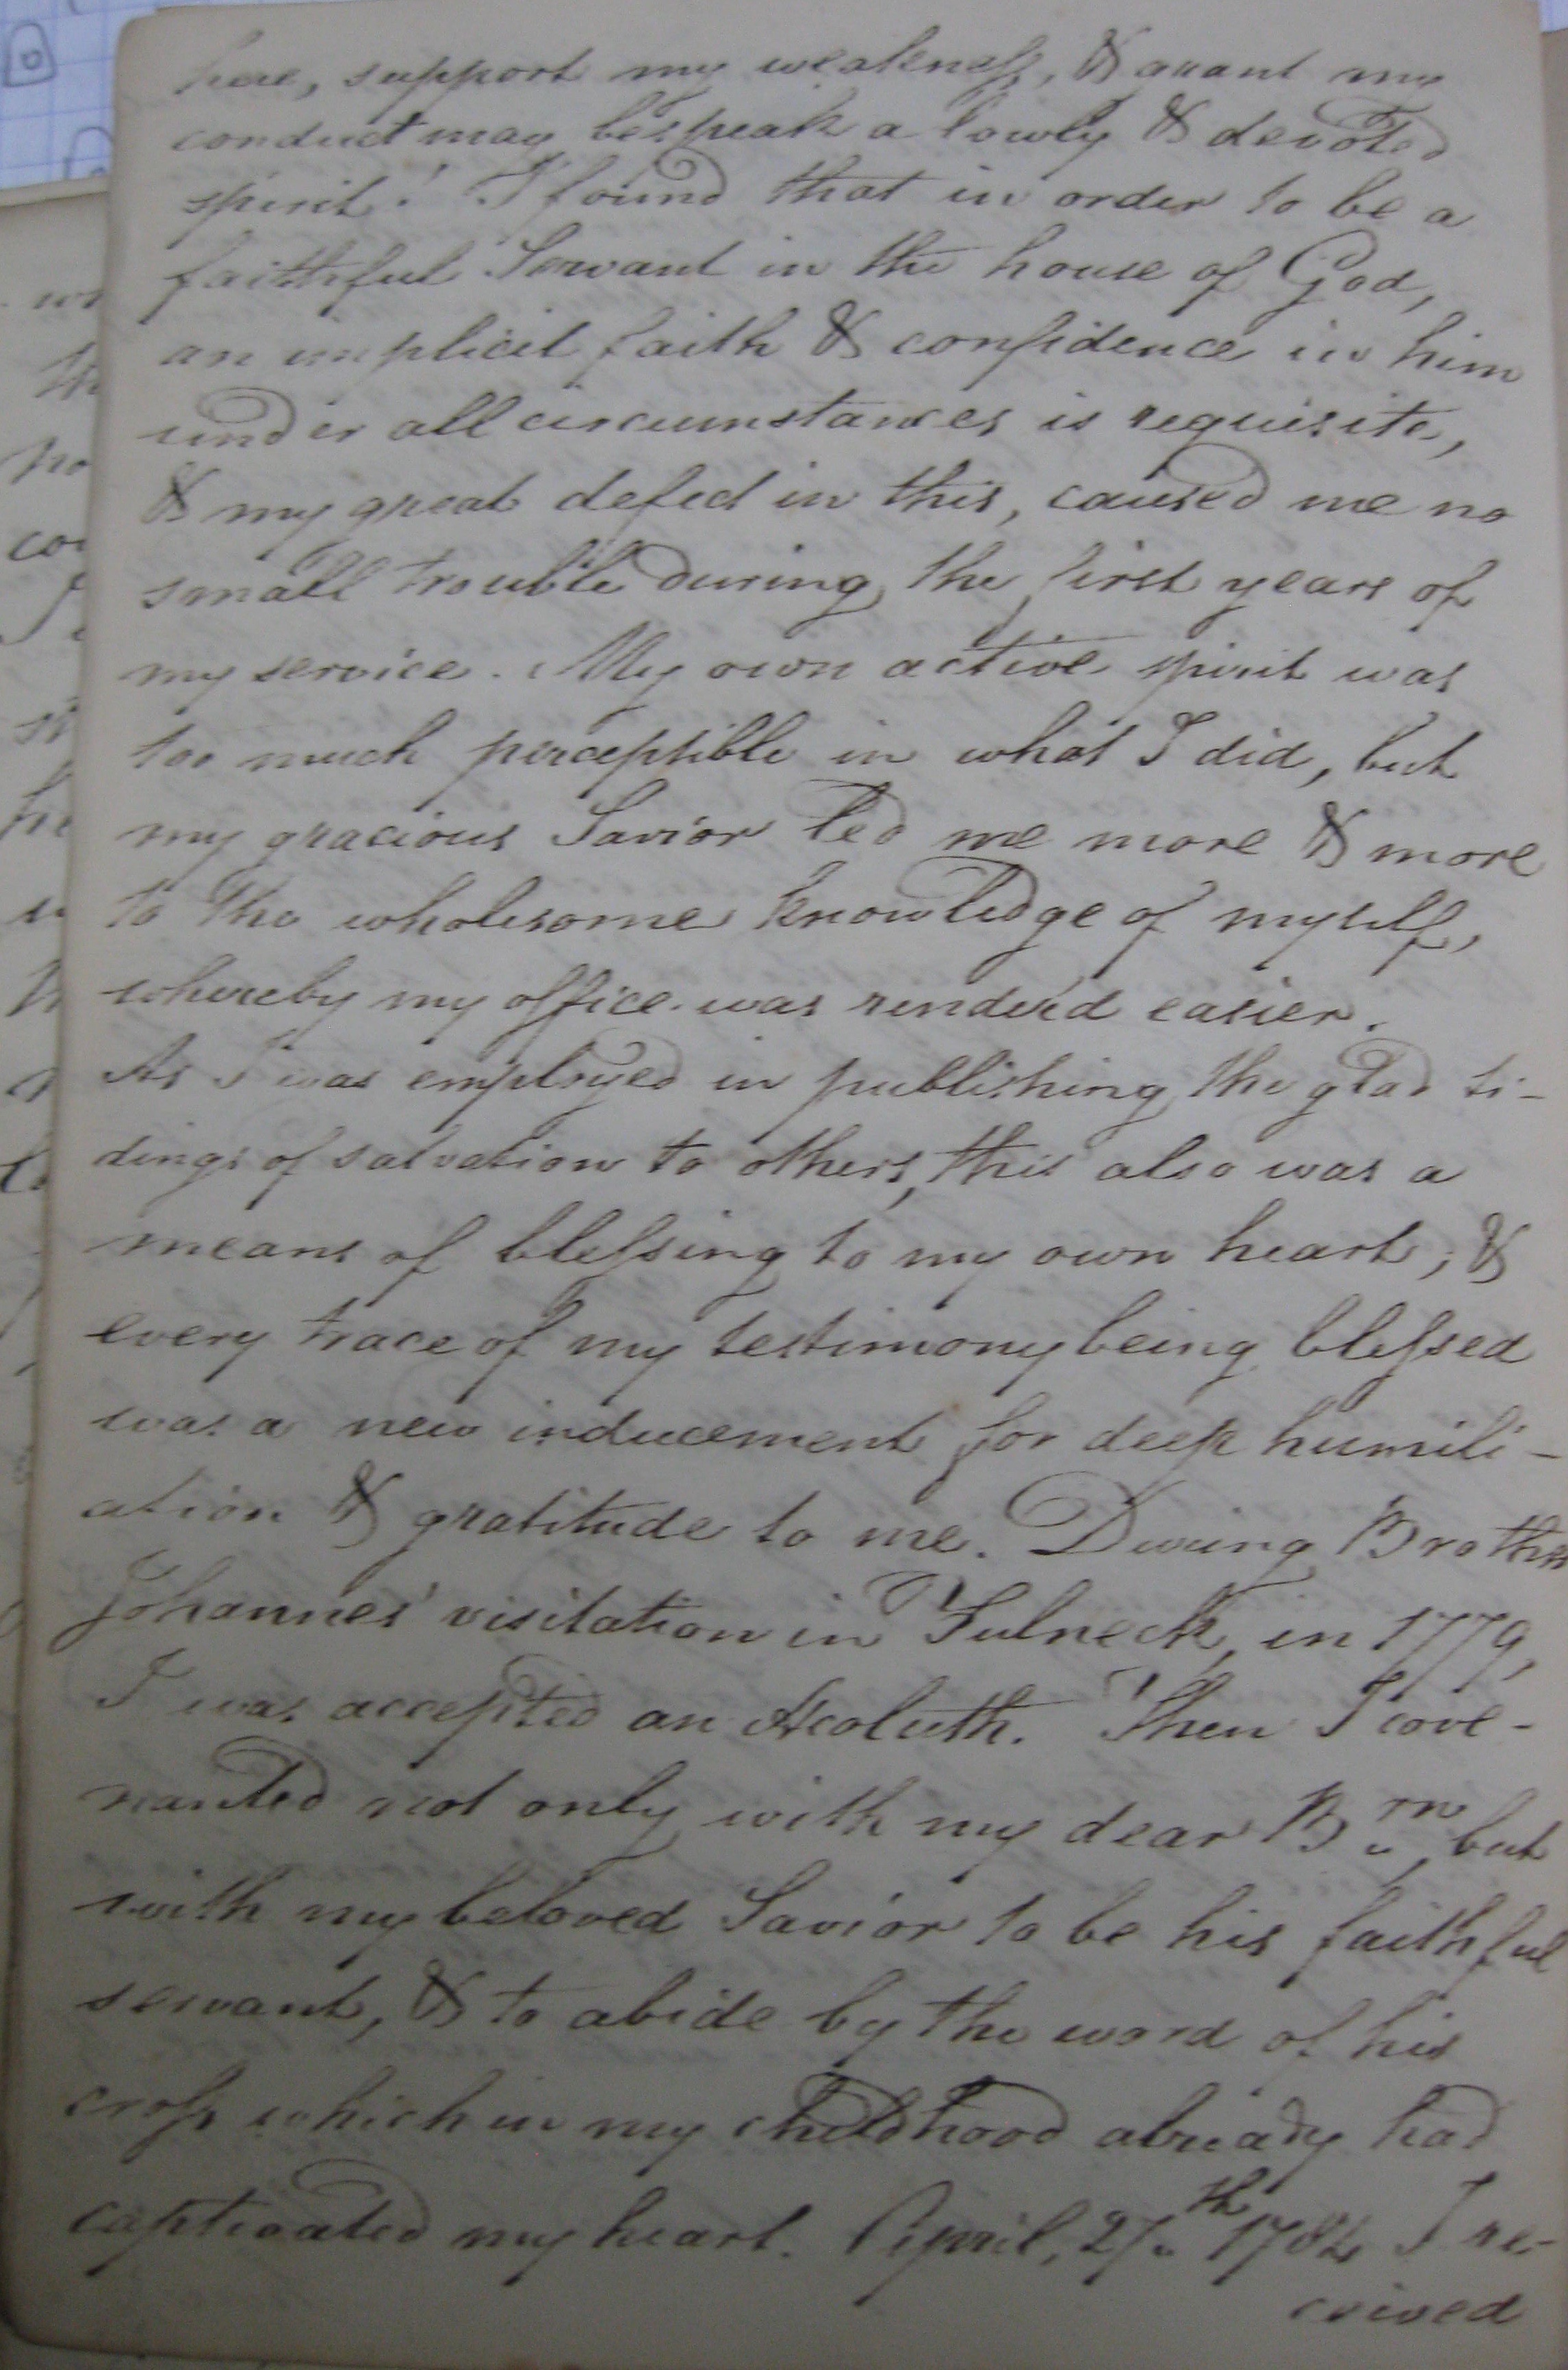 here, support my weakneſs, & grant my
conduct may bespeak a lowly & devoted
spirit! I found that in order to be a
faithful Servant in the house of God,
an implicit faith & confidence in him
under all circumstances is requisite,
& my great defect in this, caused me no
small trouble during the first years of
my service. My own active spirit was
too much perceptible in what I did, but
my gracious Savior led me more & more
to the wholesome knowledge of myself,
whereby my office was render'd easier.
As I was employed in publishing the glad ti-
dings of salvation to others, this also was a
means of bleſsing to my own heart; &
every trace of my testimony being bleſsed
was a new inducement for deep humili-
ation & gratitude to me. During Brother
Johannes' visitation in Fulneck, in 1779,
I was accepted an Acoluth. Then I cove-
nanted not only with my dear Brn, but
with my beloved Savior to be his faithful
servant, & to abide by the word of his
croſs which in my childhood already had
captivated my heart. April, 27th 1784 I re-
ceived
wi
th
no
co